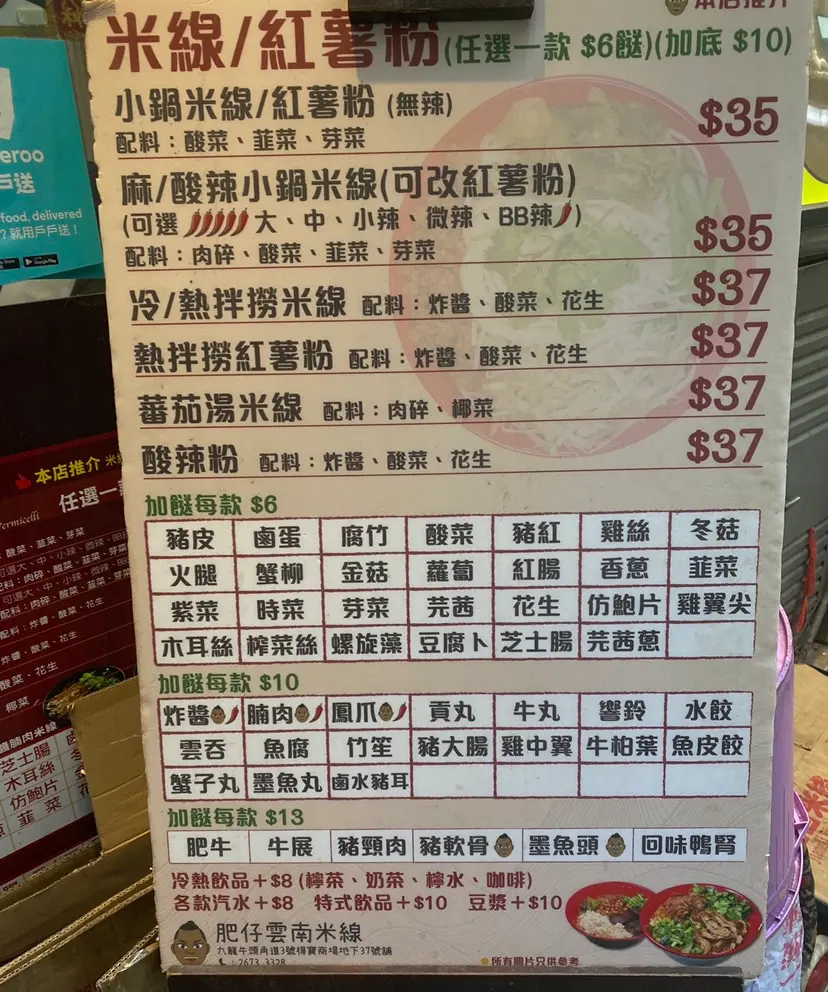 本店推介
米線/紅薯粉(任選一款 $6餸)(加底 $10)
小鍋米線/紅薯粉 (無辣) $35
配料：酸菜、韮菜、芽菜
麻/酸辣小鍋米線(可改紅薯粉)
(可選 大、中、小辣、微辣、BB辣)
配料：肉碎、酸菜、韮菜、芽菜 $35
冷/熱拌撈米線 配料：炸醬、酸菜、花生 $37
熱拌撈紅薯粉 配料：炸醬、酸菜、花生 $37
蕃茄湯米線 配料：肉碎、椰菜 $37
酸辣粉 配料：炸醬、酸菜、花生 $37
加餸每款 $6
豬皮 鹵蛋 腐竹 酸菜 豬紅 雞絲 冬菇
火腿 蟹柳 金菇 蘿蔔 紅腸 香蔥 韮菜
紫菜 時菜 芽菜 芫茜 花生 仿鮑片 雞翼尖
木耳絲 榨菜絲 螺旋藻 豆腐卜 芝士腸 芫茜蔥
加餸每款 $10
炸醬 腩肉 鳳爪 貢丸 牛丸 響鈴 水餃
雲吞 魚腐 竹笙 豬大腸 雞中翼 牛柏葉 魚皮餃
蟹子丸 墨魚丸 鹵水豬耳
加餸每款 $13
肥牛 牛展 豬頸肉 豬軟骨 墨魚頭 回味鴨腎
冷熱飲品＋$8 (檸茶、奶茶、檸水、咖啡)
各款汽水＋$8 特式飲品＋$10 豆漿＋$10
肥仔雲南米線
九龍牛頭角道3號得寶商場地下37號舖
: 2673 3328
所有圖片只供參考
eroo
戶送
food. delivered
? 就用戶戶送！
Google Play
本店推介 米線
任選一
ermicelli
酸菜、韮菜、芽菜
可選大、中、小辣、微辣、BB
料：肉碎、酸菜、韮菜、芽菜
配料：炸醬、酸菜、花生
炸醬、酸菜、花生
椰菜
醬腩肉米線
芝士腸
木耳絲
仿鮑片
韮菜